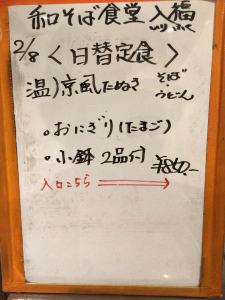 和そば食堂 入福
いりふく
2/8 〈日替定食〉
温)京風たぬき そば
うどん
。おにぎり(たまご)
。小鉢 2品付 ¥840-
入口こちら